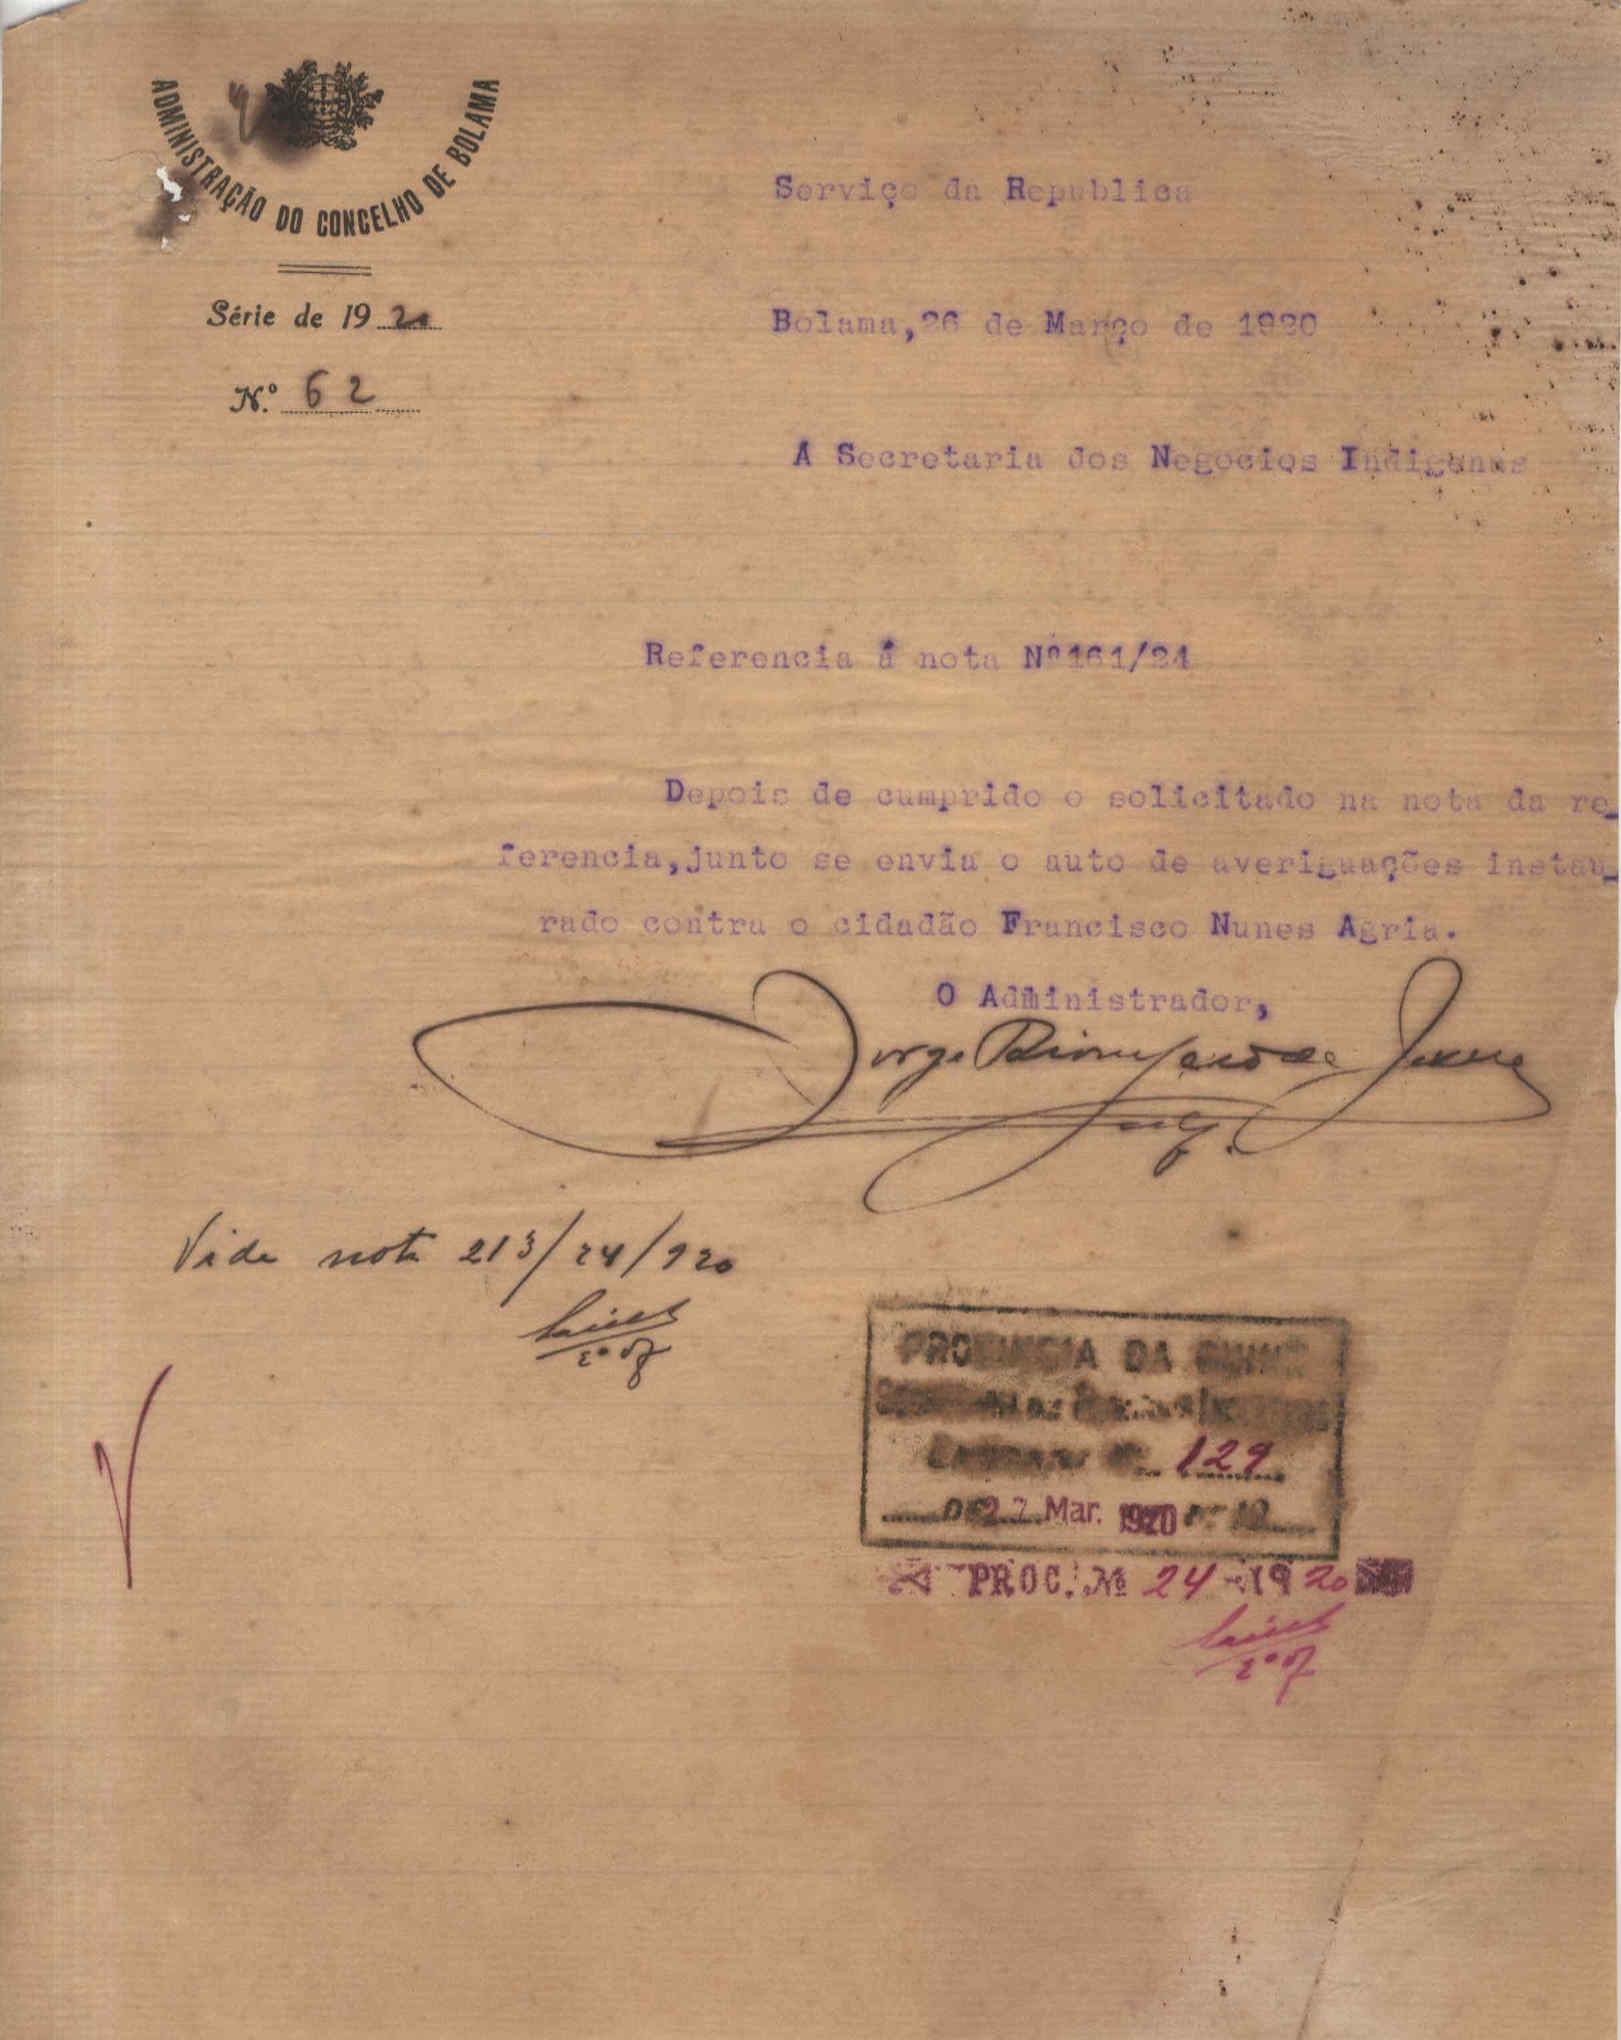 ADMINISTRAÇÃO DO CONCELHO DE BOLAMA
Série de 1920
N.º 62
Serviço da Republica
Bolama,26 de Março de 1920
Á Secretaria dos Negocios Indigenas
Referencia á nota Nº161/24
Depois de cumprido o solicitado na nota da re_
ferencia,junto se envia o auto de averiguações instau_
rado contra o cidadão Francisco Nunes Agria.
O Administrador,
Jorge
Vide nota 213/24/920
2º of
PROVINCIA DA GUINÉ
129
27 Mar. 1920
PROC. Nº 24-1920
2º of